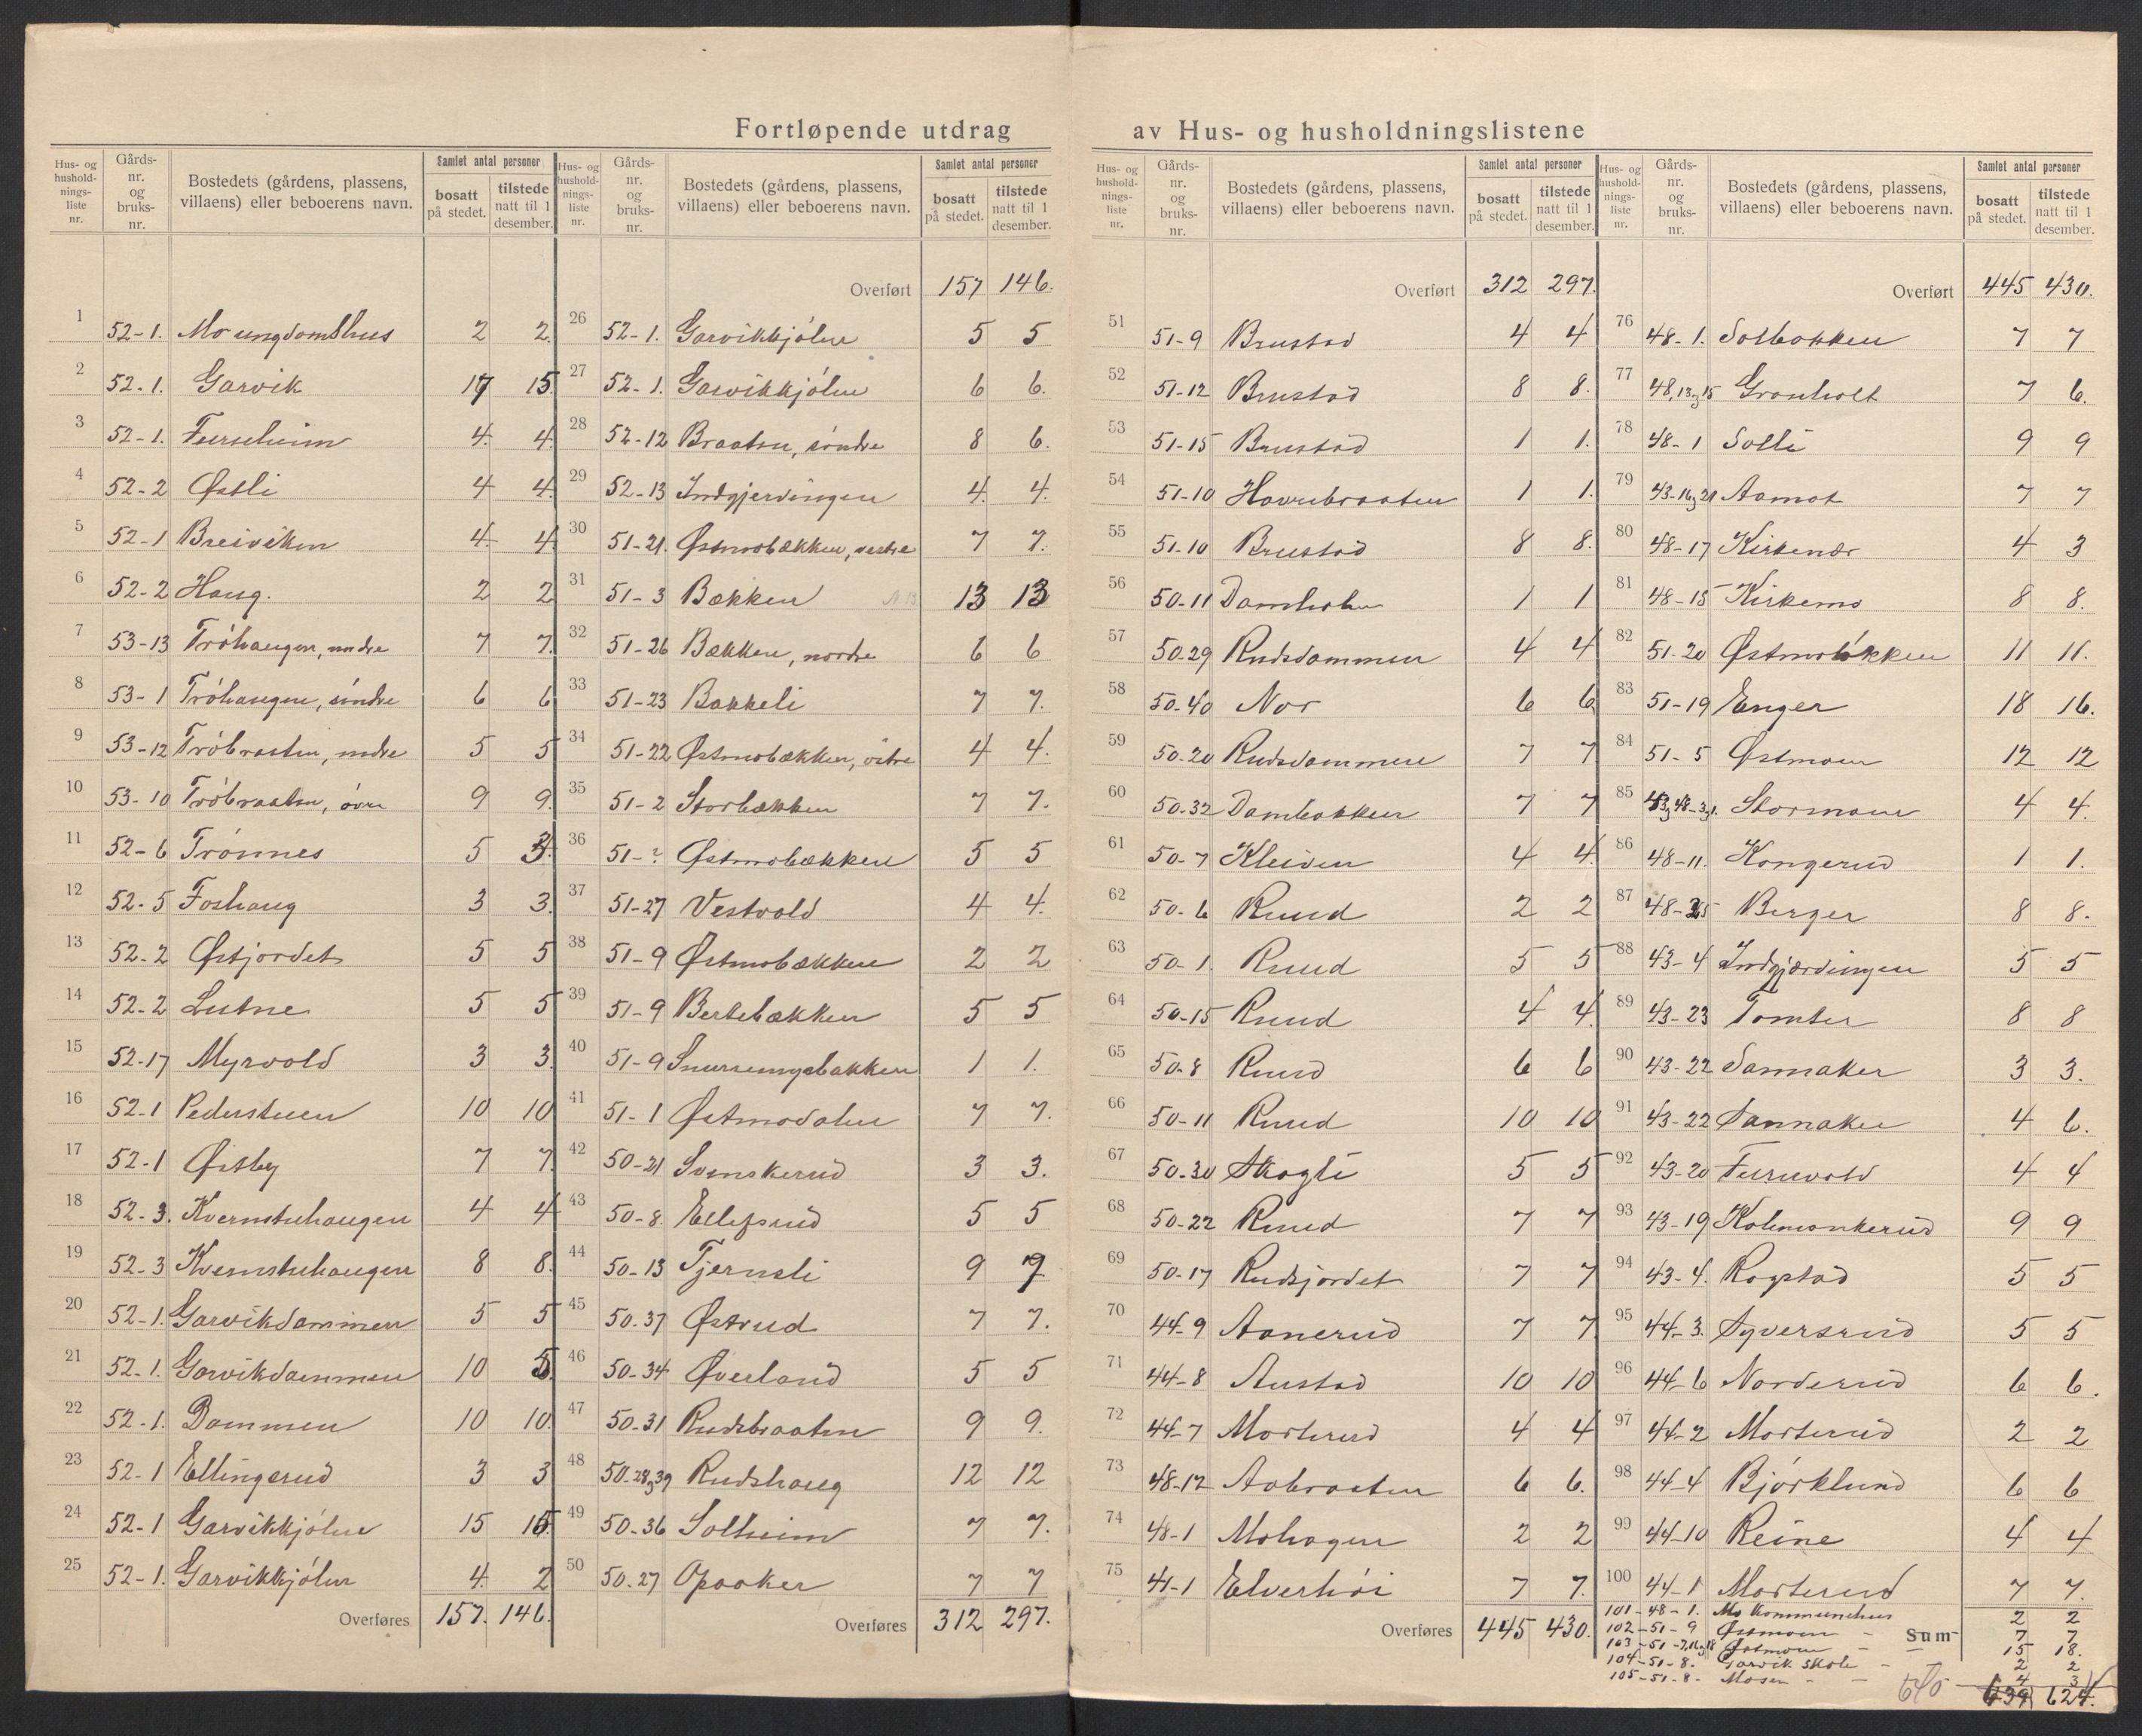 Fortløpende utdrag av Hus- og husholdningslistene
Hus- og hushold- nings- liste nr. | Gårds- nr. og bruks- nr. | Bostedets (gårdens, plassens, villaens) eller beboerens navn. | Samlet antal personer | bosatt på stedet. | tilstede natt til 1 desember.
1 52-1. Mo ungdomshus 2 2
2 52-1. Garvik 17 15
3 52-1. Furuheim 4 4
4 52-2 Østli 4 4
5 52-1 Breiviken 4 4
6 52-2 Haug. 2 2
7 53-13 Tröhaugen, nndre 7 7
8 53-1 Tröhaugen, söndre 6 6
9 53-12 Tröbraaten, nedre 5 5
10 53-10 Tröbraaten, övre 9 9
11 52-6 Trönnes 5 3
12 52-5 Foshaug 3 3
13 52-2 Østjordet 5 5
14 52-2 Lutne 5 5
15 52-17 Myrvold 3 3
16 52-1 Pederstuen 10 10
17 52-1 Østby 7 7
18 52-3. Kvernstuhaugen 4 4
19 52-3 Kvernstuhaugen 8 8
20 52-1. Garvikdammen 5 5
21 52-1. Garvikdammen 10 5
22 52-1. Dammen 10 10
23 52-1 Ellingerud 3 3
24 52-1 Garvikkjölen 15 15
25 52-1. Garvikkjölen 4 2
Overføres 157. 146.
Hus- og hushold- nings- liste nr. | Gårds- nr. og bruks- nr. | Bostedets (gårdens, plassens, villaens) eller beboerens navn. | Samlet antal personer | bosatt på stedet. | tilstede natt til 1 desember.
Overført 157 146.
26 52-1. Garvikkjölen 5 5
27 52-1. Garvikkjölen 6 6.
28 52-12 Braaten, söndre 8 6.
29 52-13 Indgjerdingen 4 4.
30 51-21. Østmobækken, vestre 7 7.
31 51-3 Bækken 13 13
32 51-26 Bækken, nordre 6 6
33 51-23 Bakkeli 7 7.
34 51-22 Østmobækken, östre 4 4.
35 51-2 Storbækken 7 7.
36 51-? Østmobækken 5 5
37 51-27 Vestvold 4 4.
38 51-9 Østmobækken 2 2
39 51-9 Bertebækken 5 5
40 51-9 Snurremyrbakken 1 1.
41 51-1 Østmodalen 7 7.
42 50-21 Svenskerud 3 3.
43 50-8. Ellefsrud 5 5
44 50-13 Tjernsli 9 7
45 50-37 Østrud 7 7.
46 50-34 Øverland 5 5
47 50-31 Rudsbraaten 9 9.
48 50-28 og 39 Rudshaug 12 12
49 50-36 Solheim 7 7.
50 50-27 Opaaker 7 7
Overføres 312 297.
Hus- og hushold- nings- liste nr. | Gårds- nr. og bruks- nr. | Bostedets (gårdens, plassens, villaens) eller beboerens navn. | Samlet antal personer | bosatt på stedet. | tilstede natt til 1 desember.
Overført 312 297.
51 51-9 Brustad 4 4
52 51-12 Brustad 8 8.
53 51-15 Brustad 1 1.
54 51-10 Havrebraaten 1 1.
55 51-10 Brustad 8 8.
56 50-11 Damholen 1 1
57 50-29 Rudsdammen 4 4
58 50-40 Nor 6 6
59 50-20 Rudsdammen 7 7
60 50-32 Dambakken 7 7
61 50-7 Kleiven 4 4
62 50-6 Ruud 2 2
63 50-1. Ruud 5 5
64 50-15 Ruud 4 4
65 50-8 Ruud 6 6
66 50-11 Ruud 10 10
67 50-30 Skogli 5 5
68 50-22 Ruud 7 7
69 50-17 Rudsjordet 7 7
70 44-9 Aanerud 7 7
71 44-8 Austad 10 10
72 44-7 Morterud 4 4
73 48-12 Aabraaten 6 6.
74 48-1 Mohagen 2 2
75 41-1 Elverhöi 7 7.
Overføres 445 430.
Hus- og hushold- nings- liste nr. | Gårds- nr. og bruks- nr. | Bostedets (gårdens, plassens, villaens) eller beboerens navn. | Samlet antal personer | bosatt på stedet. | tilstede natt til 1 desember.
Overført 445 430.
76 48-1. Solbakken 7 7
77 48, 13 og 15 Granholt 7 6.
78 48-1 Solli 9 9
79 43-16 og 21 Aamot 7 7
80 48-17 Kirkenær 4 3
81 48-15 Kirkemo 8 8.
82 51-20 Østmobækken 11 11.
83 51-19 Enger 18 16.
84 51-5 Østmoen 12 12
85 Stormoen 4 4.
86 48-11. Kongerud 1 1.
87 Berger 8 8.
88 43-4 Indgjærdingen 5 5
89 43-23 Tomter 8 8
90 43-22 Sannaker 3 3.
91 43-22 Sannaker 4 6.
92 43-20 Furuvold 4 4
93 43-19 Kolmonkerud 9 9
94 43-4. Rogstad 5 5
95 44-3. Syversrud 5 5
96 44-6 Norderud 6 6.
97 44-2 Morterud 2 2
98 44-4 Björklund 6 6
99 44-10 Reine 4 4
100 44-1 Morterud 7 7.
101-48-1. Mo Kommunehus 2 2
102-51-9 Østmoen - 7 7
Sum
103-51-7, 16 og 18 Østmoen - 15 18.
104-51-8. Garvik skole - 2 2
105-51-8- Mosen - 4 3
640 639 624.